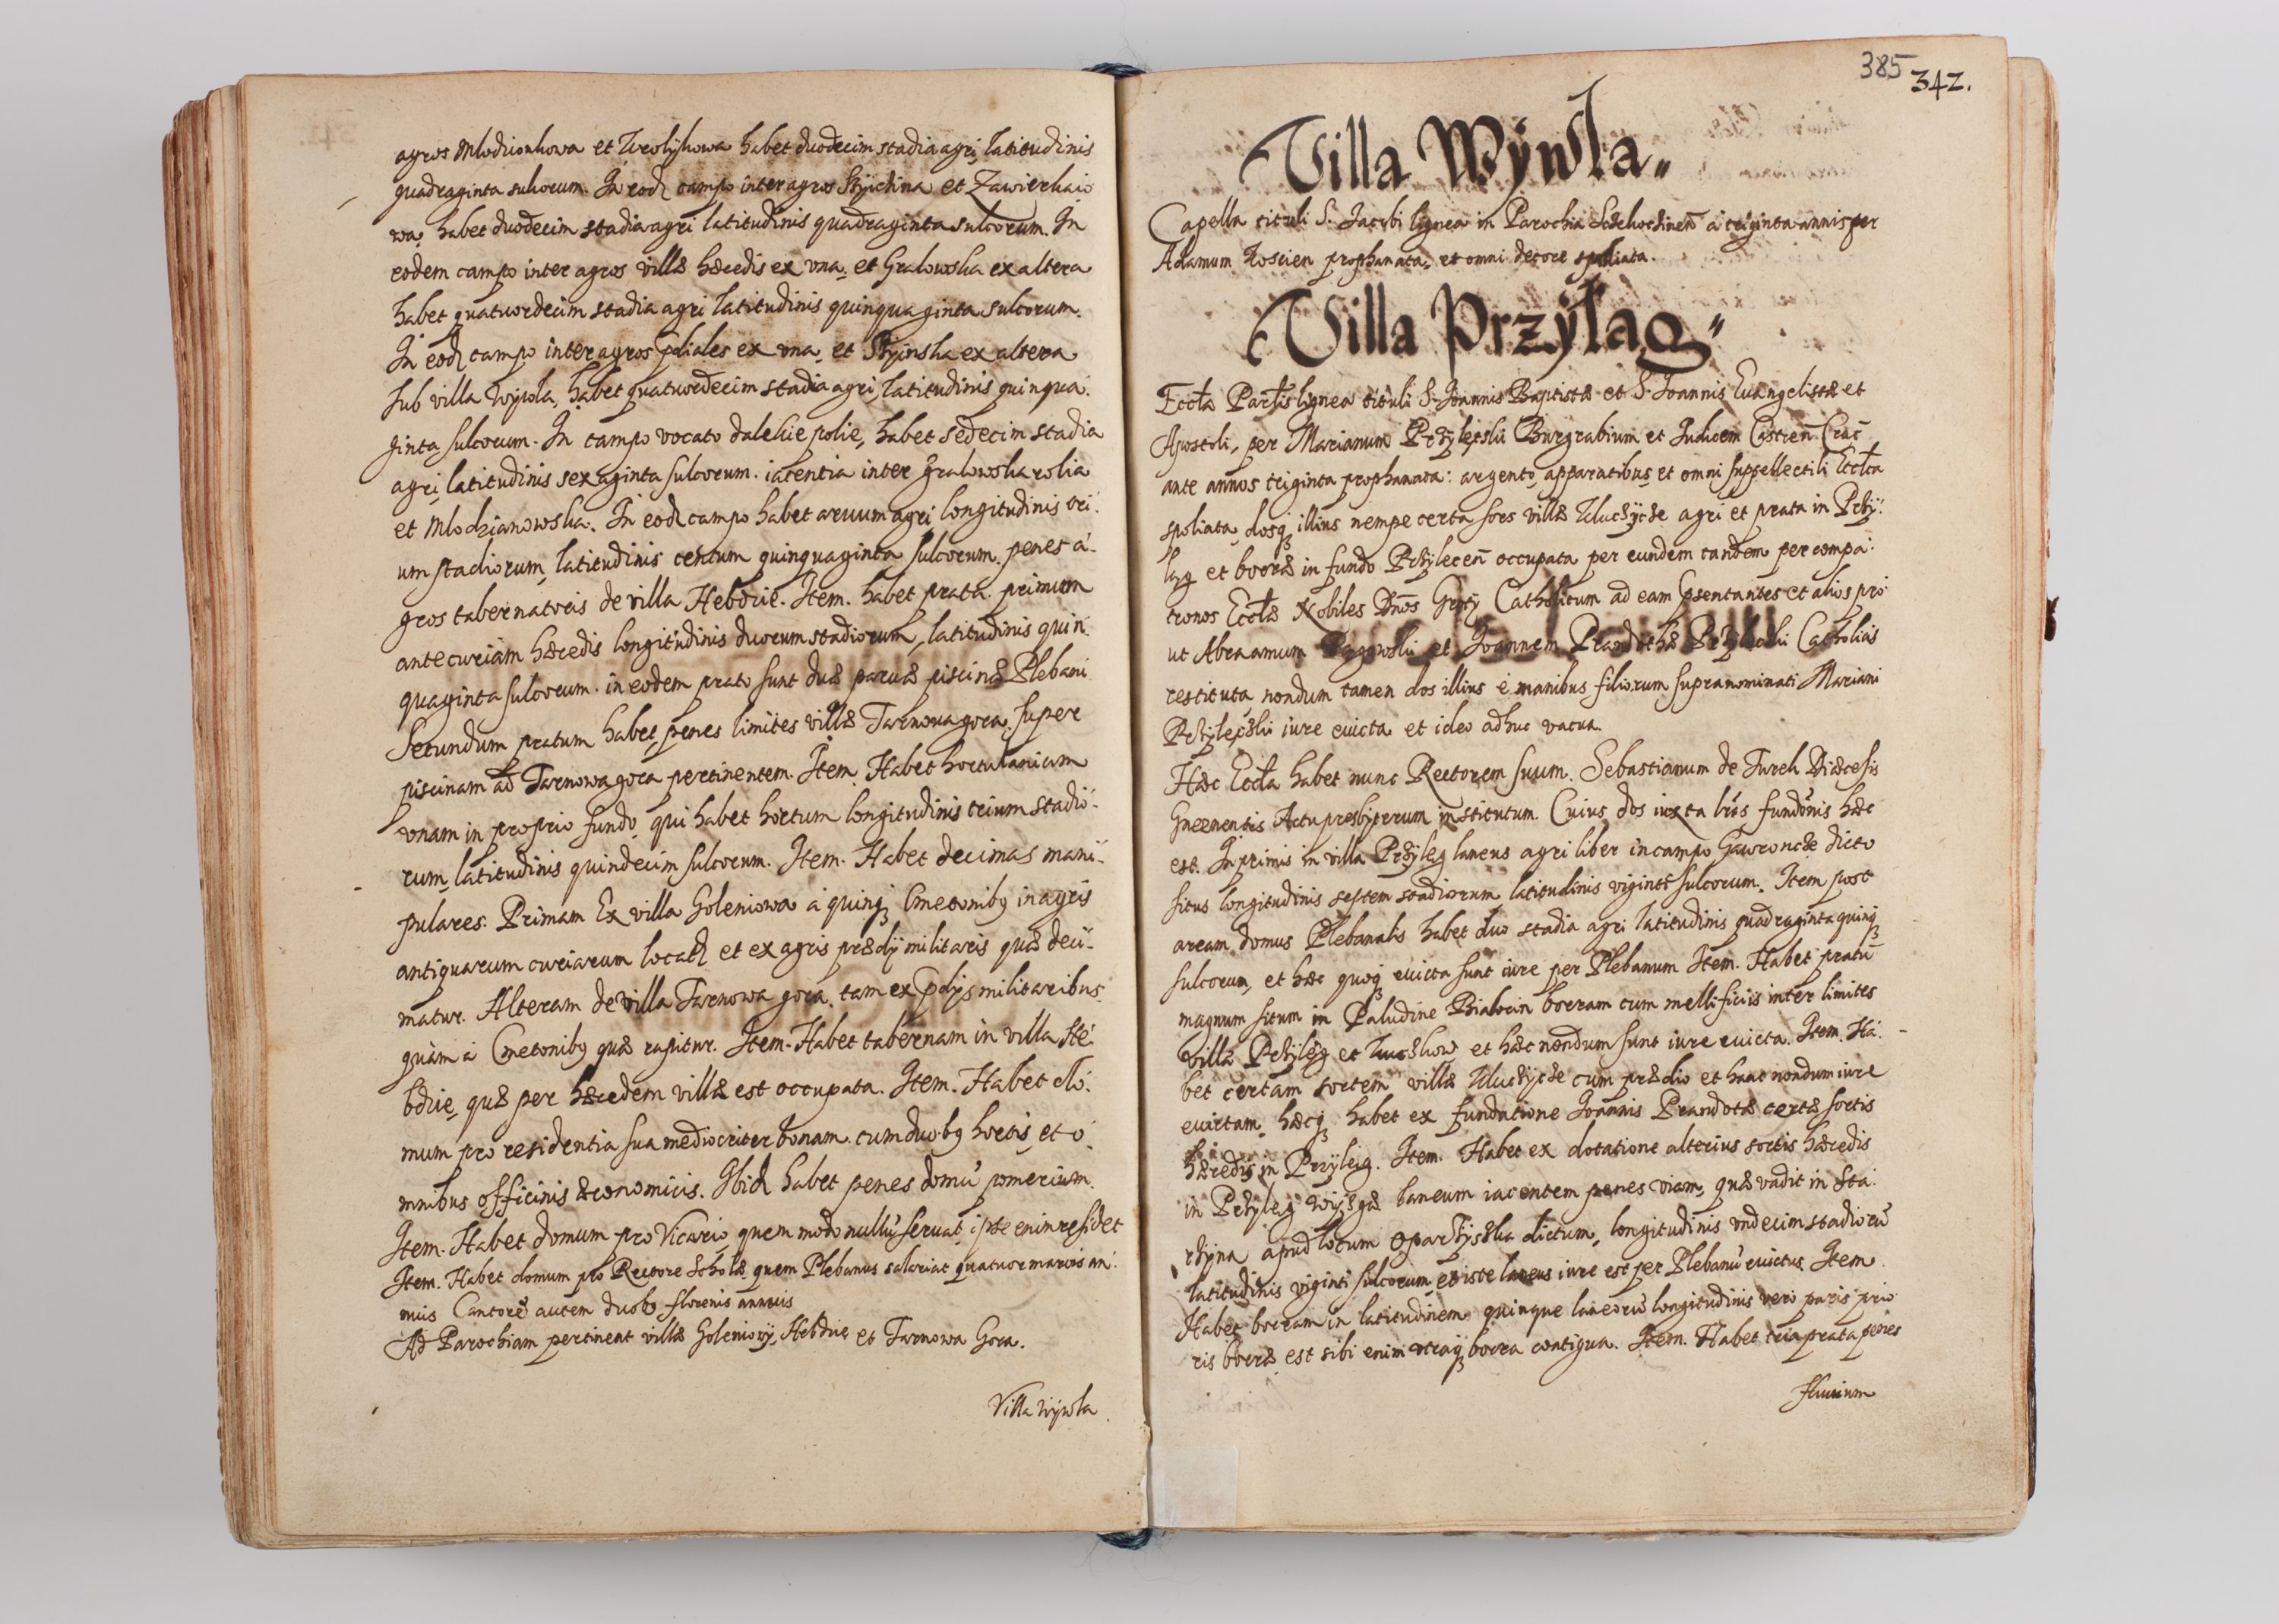 agros Mlodzionkowa et Wrolykowa habet duodecim stadia agri, latitudinis
quadraginta sulcorum. In eod campo inter agros Stÿichina et Zawierkaio
wa, habet duodecim stadia agri latitudinis quadraginta sulcorum. In
eodem campo inter agros villæ hæredis ex vna, et Gralowska ex altera
habet quatuordecim stadia agri latitudinis quinquaginta sulcorum.
In eod campo inter agros pdiales ex vna, et Skÿinska ex altera
sub villa Wÿwla, habet quatuordecim stadia agri, latitudinis quinqua-
ginta sulcorum. In campo vocato dalekie polie, habet sedecim stadia
agri latitudinis sexaginta sulcorum. iacentia inter Gralowska rolia
et Mlodzianowska. In eod campo habet aruum agri longitudinis tri-
um stadiorum, latitudinis centum quinquaginta sulcorum. penes a-
gros tabernatoris de villa Hebdzie. Item. habet prata. primum
ante curiam hæredis longitudinis duorum stadiorum, latitudinis quin-
quaginta sulcorum. in eodem prato sunt duæ paruæ piscinæ Plebani
Secundum pratum habet penes limites villæ Tarnowagora, super
piscinam ad Tarnowagora pertinentem. Item. Habet hortulaniam
vnam in proprio fundo, qui habet hortum longitudinis trium stadio-
rum, latitudinis quindecim sulcorum. Item. Habet decimas mani-
pulares. Primam Ex villa Goleniowa a quinq Cmetonibq in agris
antiquarum curiarum locatq et ex agris prædÿ militaris quæ deci-
matur. Alteram de villa Tarnowa gora. tam ex pdÿs militaribus
quàm a Cmetonibq quæ rapitur. Item. Habet tabernam in villa He-
bdzie, quæ per hæredem villæ est occupata. Item. Habet do-
mum pro residentia sua mediocriter bonam. cum duobq hortis, et o-
mnibus officinis œconomicis. Ibid habet penes domũ pomerium.
Item. Habet domum pro Vicario, quem modo nullũ seruat, ipse enim residet
Item. Habet domum pro Rectore Scholæ, quem Plebanus salariat quatuor marcis an-
nuis Cantorẽ autem duobq florenis annuis
Ad Parochiam pertinent villæ Goleniowÿ, Hebdzie et Tarnowa Gora.
Villa Wÿwla
385
342.
Villa Wÿwla
Capella tituli S. Jacobi lignea in Parochia a triginta annis per
Adamum prophanata, et omni decore spoliata.
Villa Przÿlag
Eccta Par̃lis lignea tituli S. Joannis Baptistæ et S. Joannis Euangelistæ et
Apostoli, per Marianum Przÿlepskii Burgrabium et Iudicem Castreñ. Crac̃
ante annos triginta prophanata: argento, apparatibus, et omni suppellectili Eccta
spoliata, dosq illius nempe certa sors villæ agri et prata in Przÿ-
leg et borræ in fundo Przÿleceñ occupata per eundem tandem per compa-
tronos Ecctæ Nobiles Dños Catholicum ad eam psentantes et alios pro
ut Abraamum et Joannem Catholicis
restituta, nondum tamen dos illius e manibus filiorum supranominati Mariani
Przÿlepskii iure euicta et ideo adhuc vacua.
Hæc Eccta habet nunc Rectorem suum. Sebastianum de Turek Diœcesis
Gneznensis Actu presbyterum institutum. Cuius dos iuxta lrãs fundõnis hæc
est. Inprimis in villa Przÿleg laneus agri liber in campo Gawroncze dicto
situs longitudinis septem stadiorum, latitudinis viginti sulcorum. Item post
aream domus Plebanalis habet duo stadia agri latitudinis quadraginta quinq
sulcorum, et hæc quoq euicta sunt iure per Plebanum Item. Habet pratũ
magnum situm in Paludine Bialocin borram cum mellificiis inter limites
villæ Przÿleg et et hæc nondum sunt iure euicta. Item. Ha-
bet certam sortem villæ cum prædio et hanc nondum iure
euictam, hæcq habet ex fundatione Joannis Prandotæ certæ sortis
hæredis in Przÿleg. Item. Habet ex dotatione alterius sortis hæredis
in Przÿleg laneum iacentem penes viam, quæ vadit in Sta-
rzÿna apud locum dictum, longitudinis vndecim stadiorũ
latitudinis viginti sulcorum et iste laneus iure est per Plebanũ euictus Item
Habet borram in latitudinem quinque laneorũ longitudinis vero paris prio-
ris borræ est sibi enim vtraq borra contigua. Item. Habet tria prata penes
fluuium